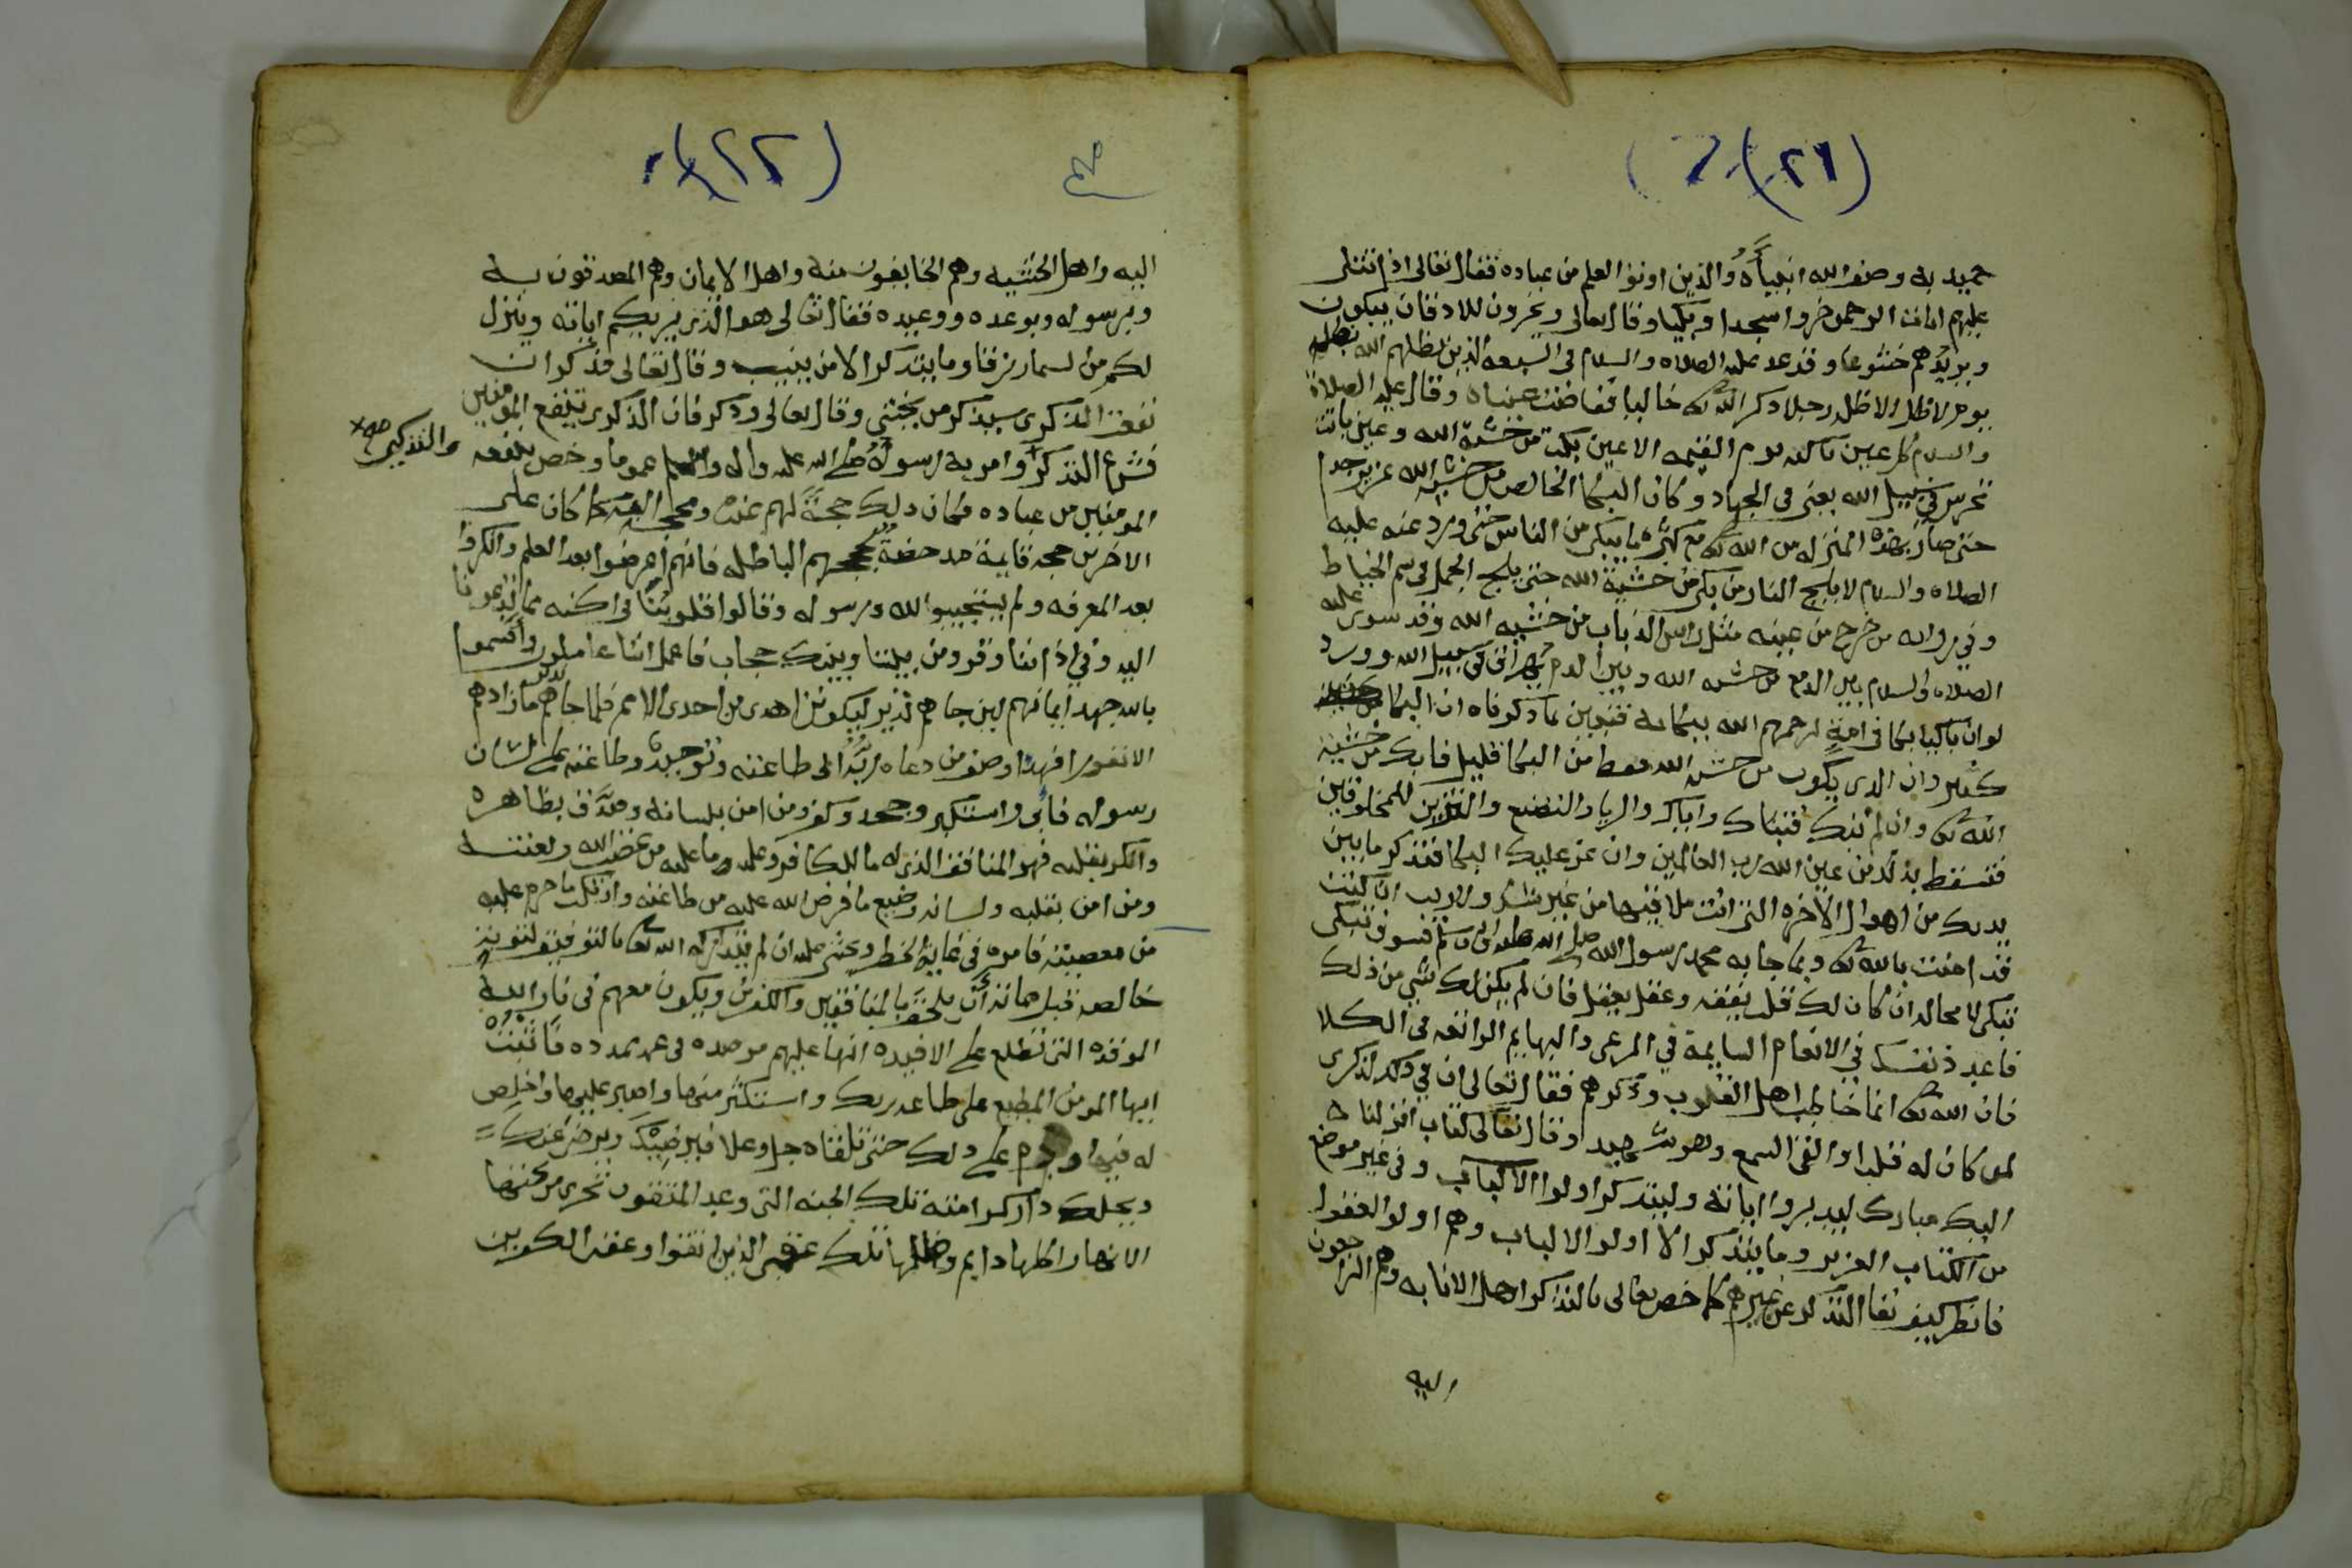 (٢١)
حميد به وصف الله انبياءه والذين اوتوا العلم من عباده فقال تعالى اذا تتلى
عليهم ايات الرحمن خروا سجدا وبكيا وقال تعالى ويخرون للاذقان يبكون
ويزيدهم خشوعا وقد عد عليه الصلاه والسلام في السبعه الذين يظلهم الله بظله
يوم لا ظل الا ظله رجلا ذكر الله خاليا ففاضت عيناه وقال عليه الصلاة
والسلام كل عين باكيه يوم القيمه الا عين بكت من خشية الله وعين باتت
تحرس في سبيل الله يعني في الجهاد وكان البكا الخالص من خشية الله عزيز جدا
حتى صار بهذه المنزله من الله مع كثره ما يبكى من الناس حتى ورد عنه عليه
الصلاه والسلام لا يلج النار من بكى من خشية الله حتى يلج الجمل في سم الخياط
وفي روايه من خرج من عينه مثل راس الذباب من خشيه الله وقد سوى عليه
الصلاه والسلام بين الدمع من خشيه الله وبين الدم يهراق في سبيل الله وورد
لو ان باكيا بكا في امة لرحمهم الله ببكايه فتبين بما ذكرناه ان البكا
كثير وان الذي يكون من خشيه الله فقط من البكا قليل فابك من خشية
الله وان لم تبك فتباك واياك والريا والتصنع والتزين للمخلوقين
فتسقط بذلك من عين الله رب العالمين وان عز عليك البكا فتذكر ما بين
يديك من اهوال الاخره التي انت ملاقيها من غير شك ولا ريب ان كنت
قد امنت بالله وبما جا به محمد رسول الله صلى الله عليه واله وسلم فسوف تبكى
تبكى لا محاله ان كان لك قلب يفقه وعقل يعقل فان لم يكن لك شي من ذلك
فاعدد نفسك في الانعام السايمة في المرعى والبهايم الراتعه في الكلا
فان الله انما خاطب اهل القلوب وذكرهم فقال تعالى ان في ذلك لذكرى
لمن كان له قلب او القى السمع وهو شهيد وقال تعالى كتاب انزلناه
اليك مبارك ليدبروا اياته وليتذكر اولوا الالباب وفي غير موضع
من الكتاب العزيز وما يتذكر الا اولوا الالباب وهم اولو العقول
فانظر كيف نفا التذكر عن غيرهم كما خص تعالى بالتذكر اهل الانابه وهم الراجعون
اليه
(٢٢)
اليه واهل الخشيه وهم الخايفون منه واهل الايمان وهم المصدقون به
وبرسوله وبوعده ووعيده فقال تعالى هو الذي يريكم اياته وينزل
لكم من السما رزقا وما يتذكر الا من ينيب وقال تعالى فذكر ان
نفعت الذكرى سيذكر من يخشى وقال تعالى وذكر فان الذكرى تنفع المومنين
فشرع التذكر وامر به رسوله صلى الله عليه واله وسلم عموما وخص بنفعه
والتذكير صح
المومنين من عباده فكان ذلك حجة لهم عنده ومحجة اليه كما كان على
الاخرين حجه قايمة مدحضة لحججهم الباطله فانهم اعرضوا بعد العلم وانكروا
بعد المعرفه ولم يستجيبوا لله ورسوله وقالوا قلوبنا في اكنه مما تدعونا
اليه وفي اذاننا وقر ومن بيننا وبينك حجاب فاعمل اننا عاملون واقسموا
بالله جهد ايمانهم لين جاهم نذير ليكونن اهدى من احدى الامم فلما جاهم نذير ما زادهم
الا نفورا فهذا وصف من دعاه ربه الى طاعته وتوحيده وطاعته على لسان
رسوله فابى واستكبر وجحد وكفر ومن امن بلسانه وصدق بظاهره
وانكر بقلبه فهو المنافق الذي له ما للكافر وعليه ما عليه من غضب الله ولعنته
ومن امن بقلبه ولسانه وضيع ما فرض الله عليه من طاعته وارتكب ما حرم عليه
من معصيته فامره في غاية الخطر ويخشى عليه ان لم يتداركه الله بالتوفيق لتوبة
خالصه قبل مماته ان يلحق بالمنافقين والكفرين ويكون معهم في نار الله
الموقده التي تطلع على الافيده انها عليهم موصده في عمد ممدده فاثبت
ايها المومن المطيع على طاعه ربك واستكثر منها واصبر عليها واخلص
له فيها ودم على ذلك حتى تلقاه جل وعلا فيرضيك ويرضى عنك
ويحلك دار كرامته تلك الجنه التي وعد المتقون تجري من تحتها
الانهار اكلها دايم وظلها تلك عقبى الذين اتقوا وعقبى الكافرين